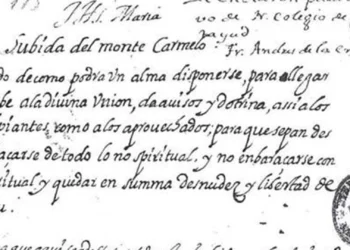 J.H.S. Maria
vo de N. Colegio de
Subida del monte Carmelo
Fr. Andres de la
do de como podra un alma disponerse, para llegar
be a la divina Union, da avisos y dotrina, assi a los
piantes, como a los aprovechados; para que sepan des
acarse de todo lo no spiritual, y no enbaracarse con
ritual y quedar en summa desnudez y libertad de
u.